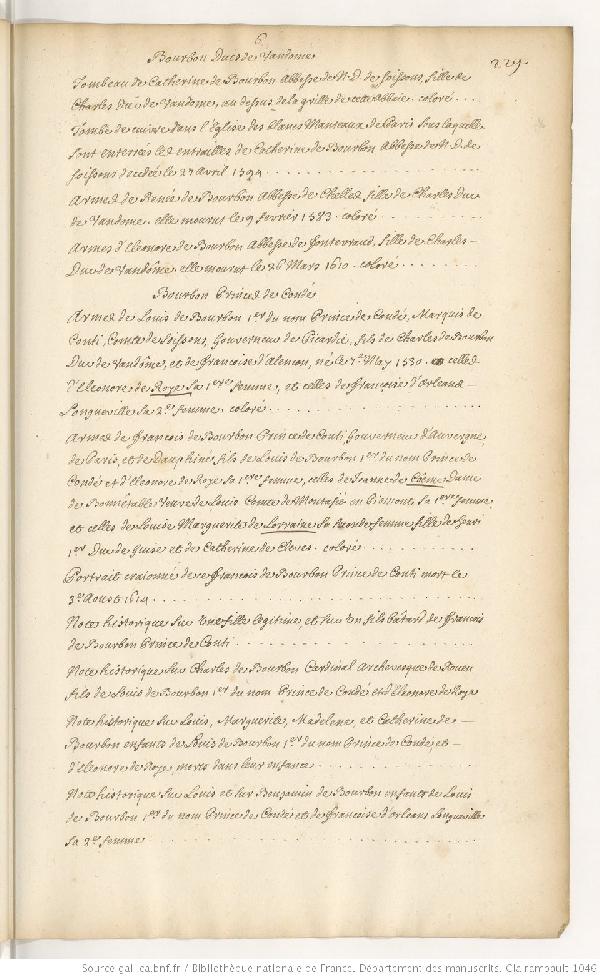 6
229.
Bourbon Ducs de Vandome
Tombeau de Catherine de Bourbon Abbesse de N. D. de Soissons, fille de
Charles Duc de Vandome, au dessus de la grille de cette Abbaie. coloré
Tombe de cuivre dans l'Eglise des blancs Manteaux de Paris sous laquelle
sont enterrées les entrailles de Catherine de Bourbon Abbesse de N. D. de
Soissons decedée le 27 Avril 1594
Armes de Renée de Bourbon Abbesse de Chelles, fille de Charles Duc
de Vandome. elle mourut le 9 fevrier 1583. coloré
Armes d'Eleonore de Bourbon Abbesse de fontevraud, fille de Charles
Duc de Vandôme. elle mourut le 26 Mars 1610. coloré
Bourbon Princes de Condé
Armes de Louis de Bourbon 1er du nom Prince de Condé, Marquis de
Conti, Comte de Soissons, Gouverneur de Picardie, fils de Charles de Bourbon
Duc de Vandôme, et de francoise d'Alencon, né le 7 May 1530. celles
d'Eleonore de Roye sa 1ere femme, et celles de francoise d'Orleans
Longueville sa 2e femme. coloré
Armes de francois de Bourbon Prince de Conti Gouverneur d'Auvergne
de Paris, et de Dauphiné, fils de Louis de Bourbon 1er du nom Prince de
Condé et d'Eleonore de Roye sa 1ere femme, celles de Jeanne de Coëme Dame
de Bonnétable Veuve de Louis Comte de Montafié en Piemont sa 1ere femme
et celles de Louise Marguerite de Lorraine sa seconde femme, fille de Henri
1er Duc de Guise et de Catherine de Cleves. coloré
Portrait craionné de francois de Bourbon Prince de Conti mort le
3 Aoust 1614
Note historique sur une fille legitime, et sur un fils bâtard de francois
de Bourbon Prince de Conti
Note historique sur Charles de Bourbon Cardinal Archevesque de Rouen
fils de Louis de Bourbon 1er du nom Prince de Condé et d'Eleonore de Roye
Note historique sur Louis, Marguerite, Madelene, et Catherine de
Bourbon enfants de Louis de Bourbon 1er du nom Prince de Condé, et
d'Eleonore de Roye, morts dans leur enfance
Note historique sur Louis et sur Benjamin de Bourbon enfants de Louis
de Bourbon 1er du nom Prince de Condé et de francoise d'Orleans Longueville
sa 2e femme
Source gallica.bnf.fr / Bibliothèque nationale de France. Département des manuscrits. Clairambault 1046